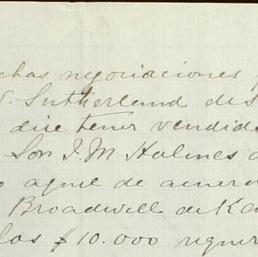 chas negociaciones
Sutherland des
dise tener vendid
Son J. M Holmes
o aque de acuer
Broadwell de Ka
los $10.000 reque